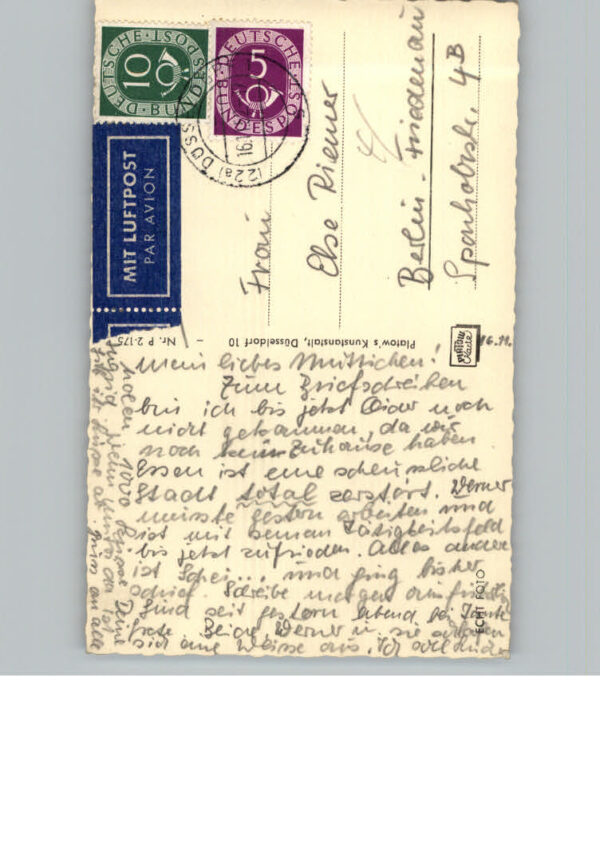 DEUTSCHE BUNDESPOST
10
DEUTSCHE BUNDESPOST
5
(22a) DÜSS
16.
MIT LUFTPOST
PAR AVION
Frau
Else Riemer
Berlin-Friedenau
Sponholzstr. 4B
Platow's Kunstanstalt, Düsseldorf 10 - Nr. P 2-175
ECHT FOTO
16.11.
Mein liebes Muttichen!
Zum Briefschreiben
bin ich bis jetzt leider noch
nicht gekommen, da wir
noch kein Zuhause haben.
Essen ist eine scheussliche
Stadt total zerstört. Werner
musste gestern arbeiten und
ist mit seinem Tätigkeitsfeld
bis jetzt zufrieden. Alles andere
ist Schei... und ging bisher
schief. Schreibe morgen ausführlich
Sind seit gestern Abend bei Tante
Grete. Beide, Werner u. sie
sich eine Weisse aus. Ich soll Euch
holen 1000 Grüsse Deine
Ingrid